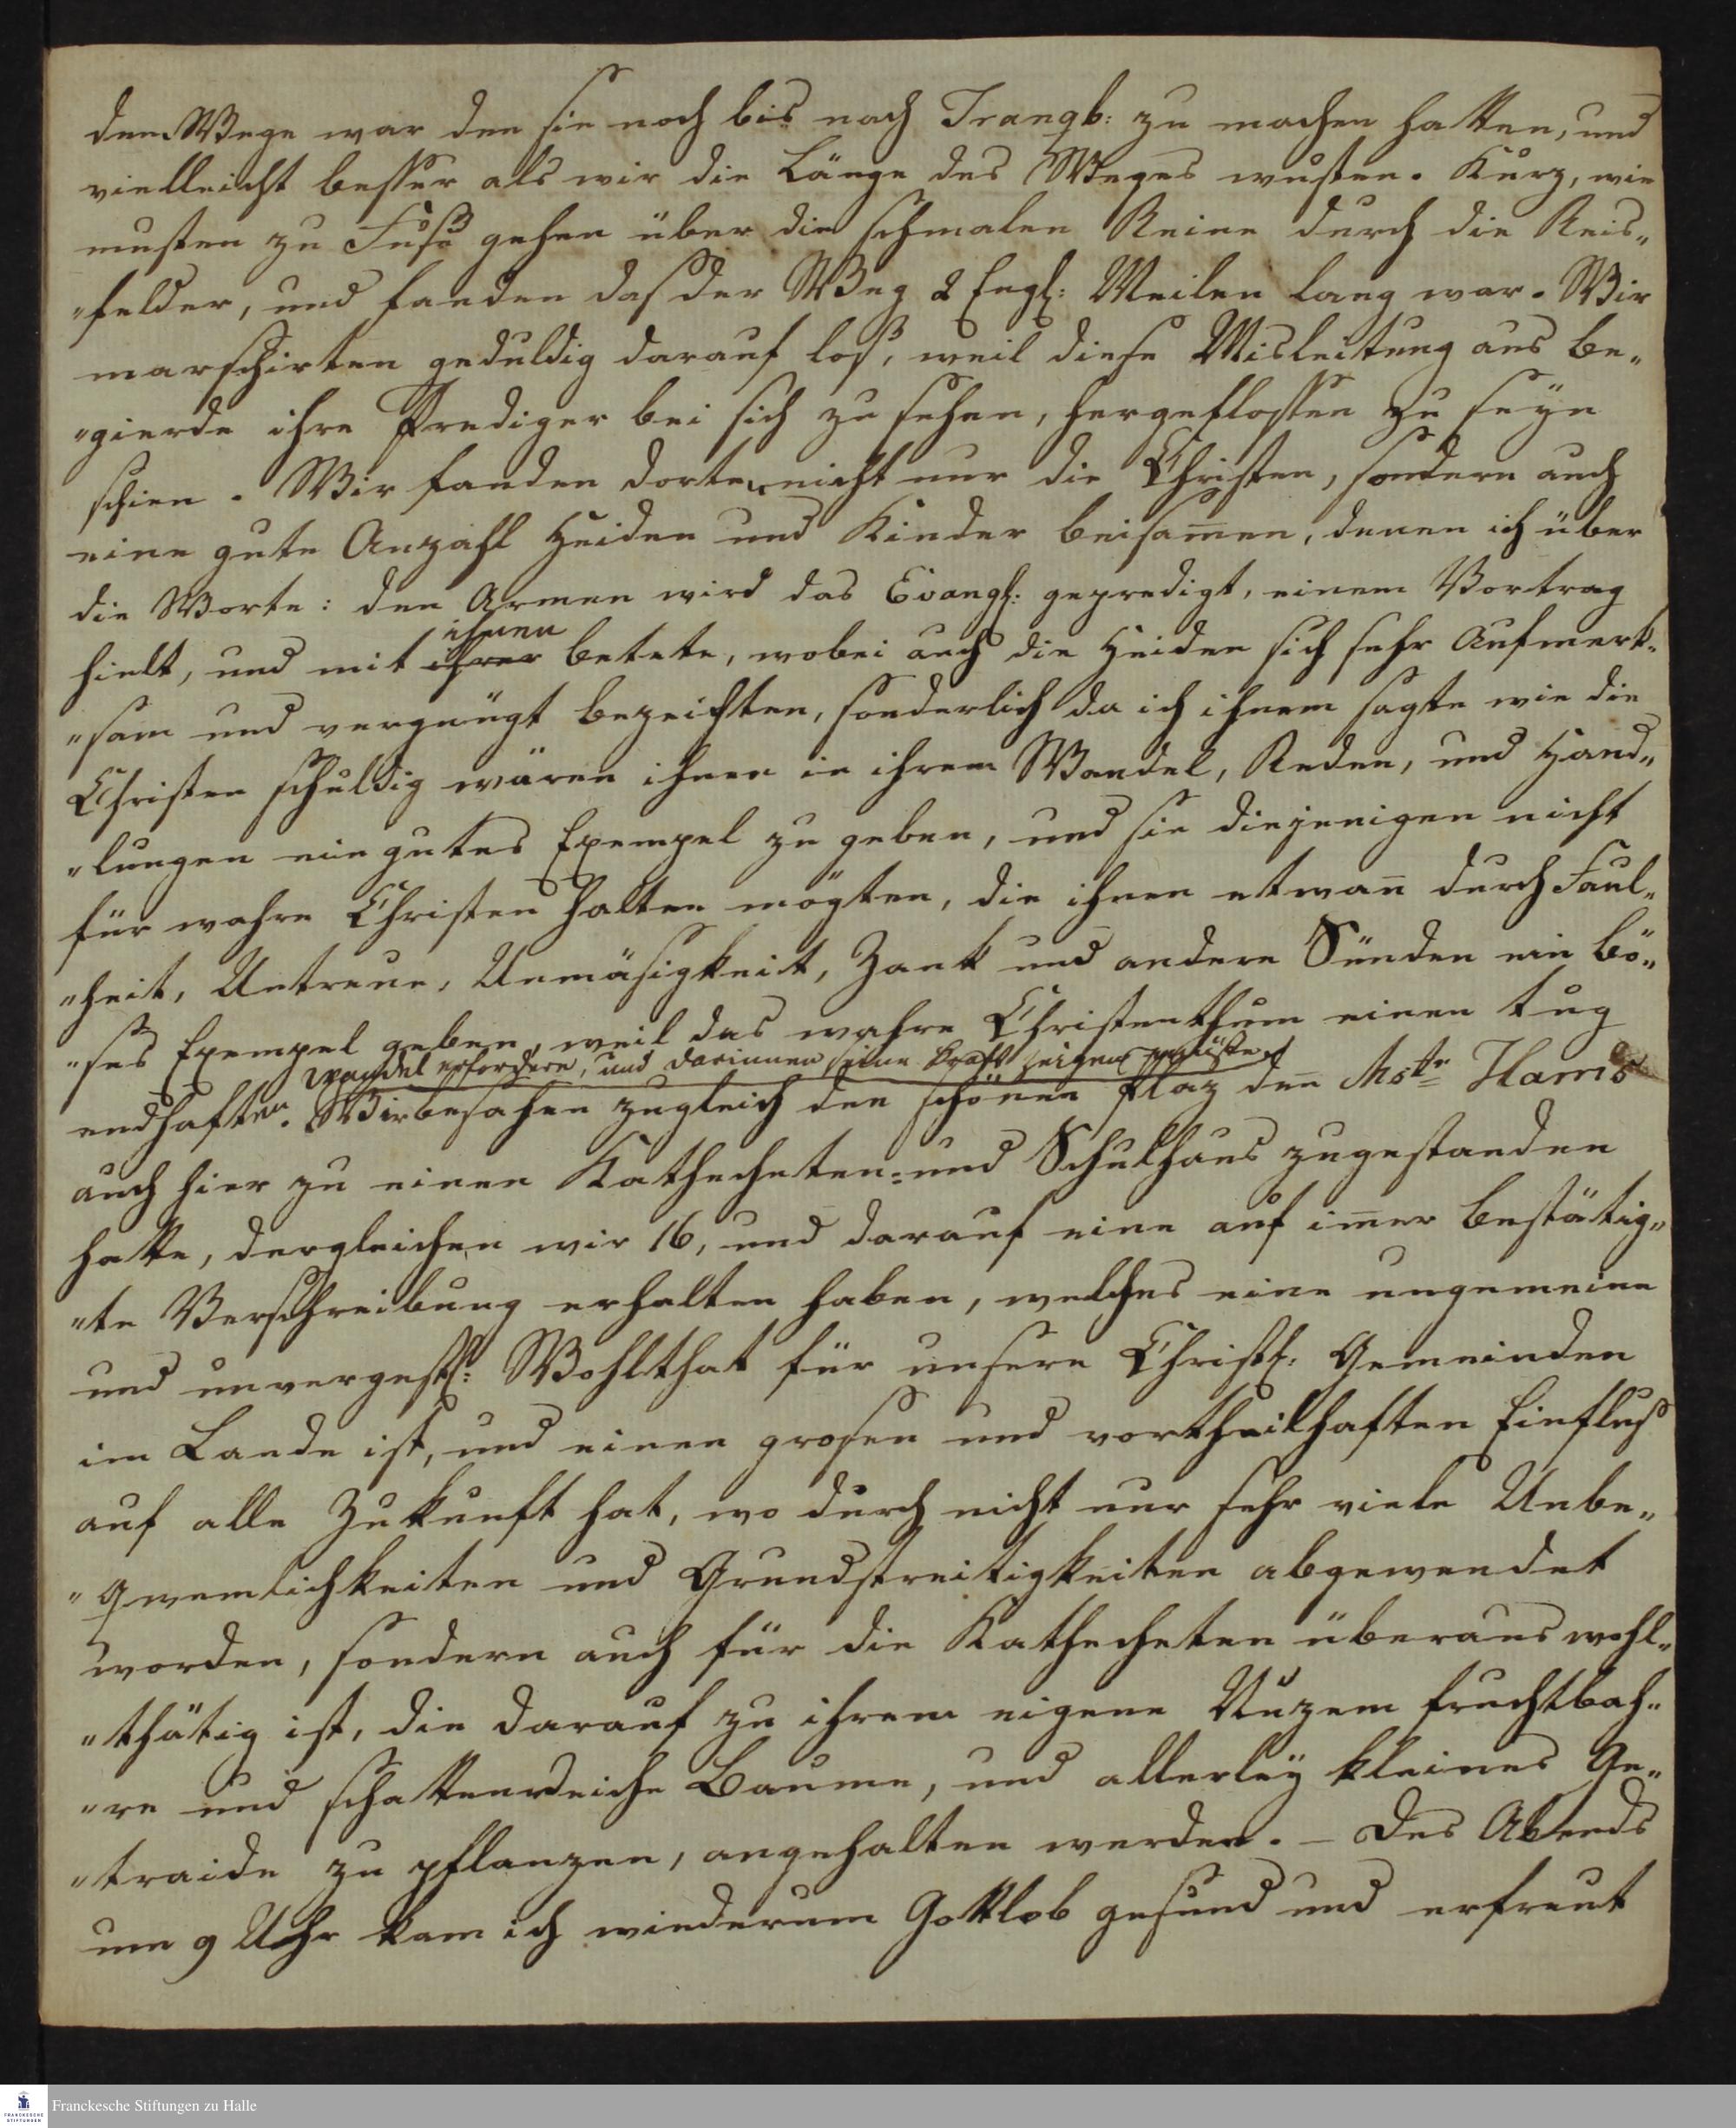 dem Wege war den sie noch bis nach Trangb: zu machen hatten, und
vielleicht besser als wir die Länge des Weges wusten. Kurz, wir
musten zu Fuß gehen über die schmalen Reine durch die Reis„
„felder, und fanden daß der Weg 2 Engl: Meilen lang war. Wir
marschirten geduldig darauf loß, weil diese Misleitung aus Be„
„gierde ihre Prediger bei sich zu sehen, hergeflossen zu seyn
schien. Wir fanden dorten nicht nur die Christen, sondern auch
eine gute Anzahl Heiden und Kinder beisam̅en, denen ich über
die Worte: den Armen wird das Evangl: gepredigt, einem Vortrag
ihnen
hielt, und mit ihrer betete, wobei auch die Heiden sich sehr Aufmerk„
„sam und vergnügt bezeichten, sonderlich da ich ihnem sagte wie die
Christen schuldig wären ihnen in ihrem Wandel, Reden, und Hand„
„lungen ein gutes Exempel zu geben, und sie diejenigen nicht
für wahre Christen halten mögten, die ihnen etwan̅ durch Faul„
„heit, Untreue, Unmäsigkeit, Zank und andere Sünden ein bö„
„ses Exempel geben, weil das wahre Christenthum einen tug
Wandel erfordere, und darinnen seine Kraft zeigen müste.
endhaften. Wir besahen zugleich den schönen Plaz den̅ Mstr Harris
auch hier zu einen Kathecheten- und Schulhaus zugestanden
hatte, dergleichen wir 16, und darauf eine auf im̅er bestätig„
„te Verschreibung erhalten haben, welches eine ungemeine
und unvergesl: Wohlthat für unsere Christl: Gemeinden
im Lande ist, und einen grosen und vortheilhaften Einfluß
auf alle Zukunft hat, wo durch nicht nur sehr viele Unbe„
„qwemlichkeiten und Grundstreitigkeiten abgewendet
worden, sondern auch für die Kathecheten überaus wohl„
„thätig ist, die darauf zu ihrem eigene Nuzem fruchtbah„
„re und schattenreiche Baume, und allerley kleines Ge„
„traide zu pflanzen, angehalten werden. – Des Abends
um 9 Uhr kam ich wiederum Gottlob gesund und erfreut
Franckesche Stiftungen zu Halle
FRANCKESCHE STIFTUNGEN